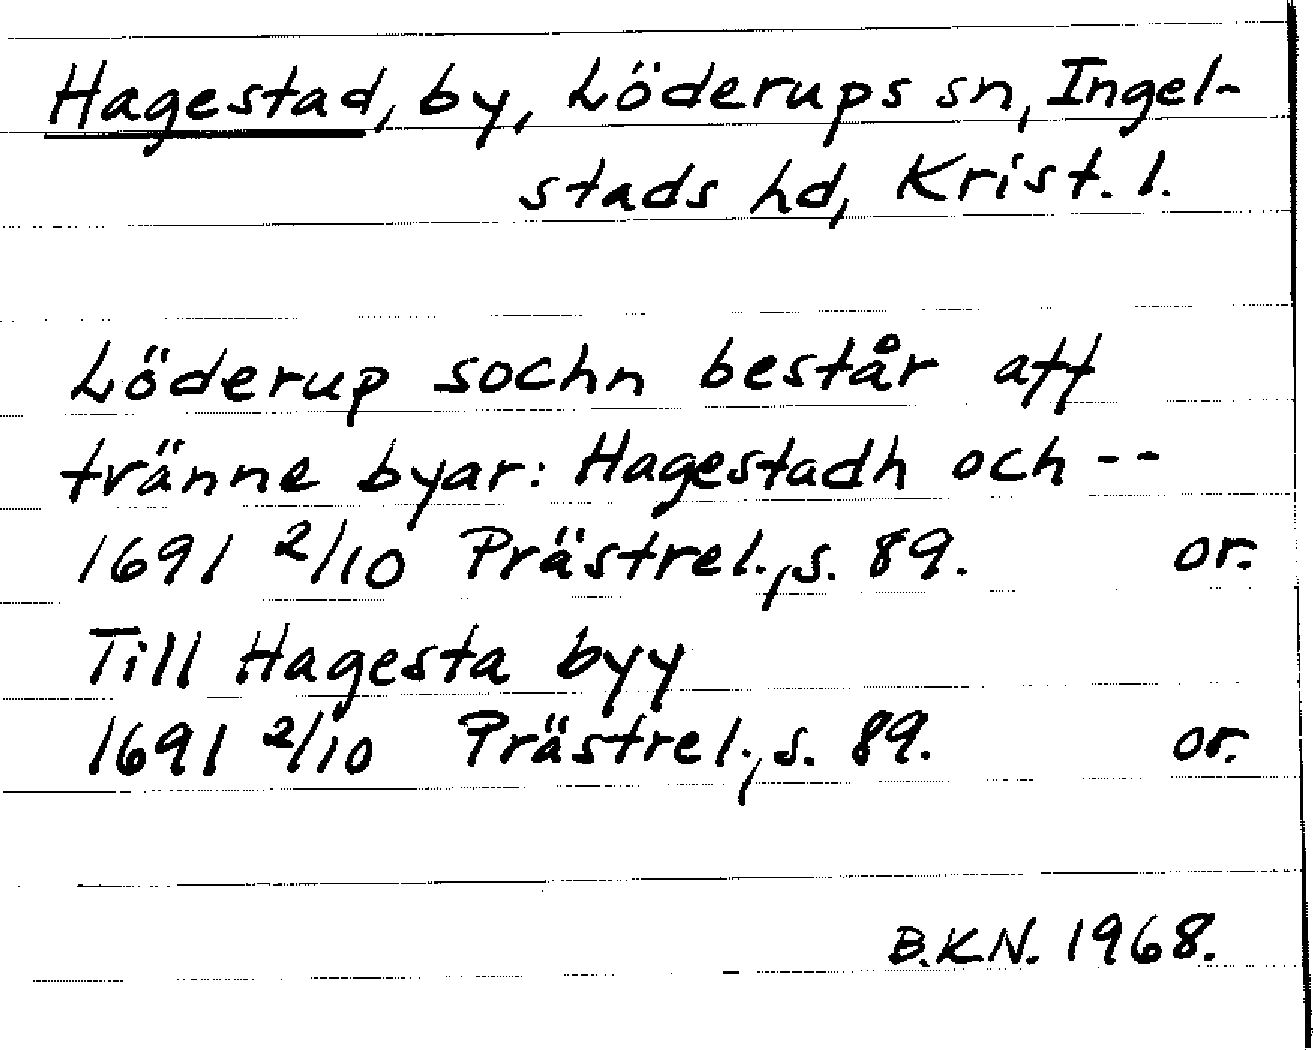 Hagestad, by, Löderups sn, Ingel-
stads hd, Krist. l.
Löderup sochn består aff
tvänne byar: Hagestadh och --
1691 2/10 Prästrel., s. 89. or.
Till Hagesta byy
1691 2/10 Prästrel., s. 89. or.
B.K.N. 1968.